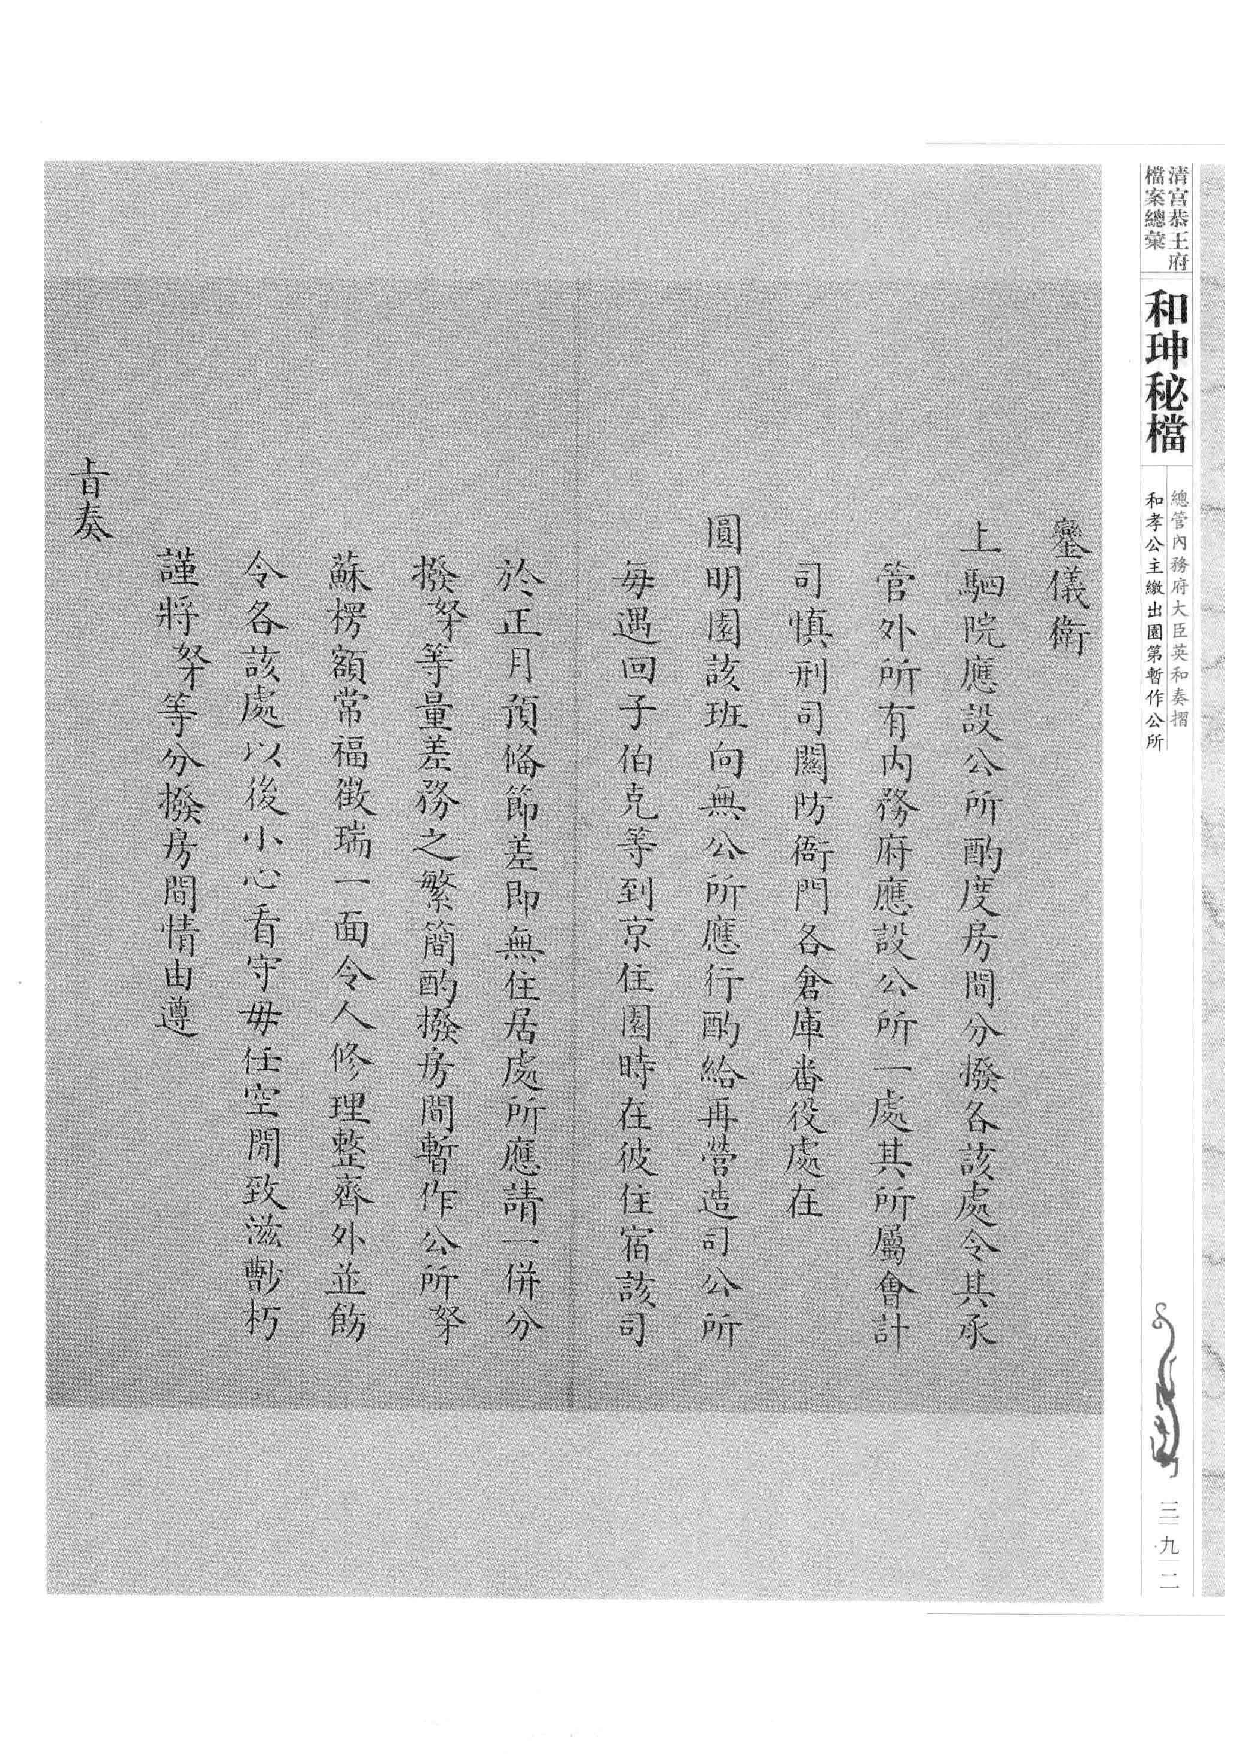 清宮恭王府
檔案總彙
和珅秘檔
總管內務府大臣英和奏摺
和孝公主繳出園第暫作公所
三九二
鑾儀衛
上駟院應設公所酌度房間分撥各該處令其承
管外所有内務府應設公所一處其所屬會計
司慎刑司關防衙門各倉庫番役處在
圓明園該班向無公所應行酌給再營造司公所
每遇回子伯克等到京住園時在彼住宿該司
於正月預俻節差即無住居處所應請一併分
撥奴才等量差務之繁簡酌撥房間暫作公所奴才
蘇楞額常福徵瑞一面令人修理整齊外並飭
令各該處以後小心看守毋任空閒致滋劖朽
謹將奴才等分撥房間情由遵
旨奏